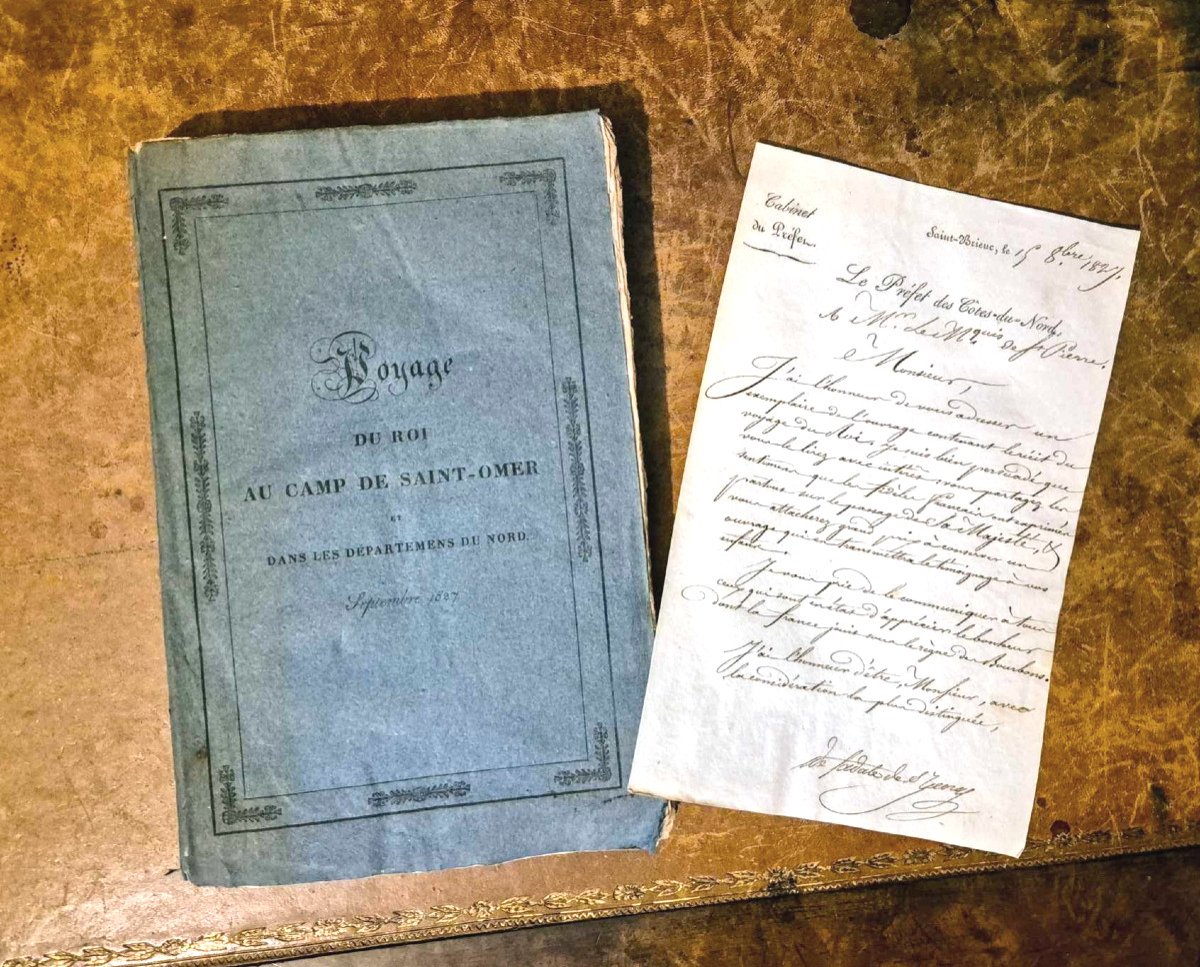 Voyage
DU ROI
AU CAMP DE SAINT-OMER
ET
DANS LES DÉPARTEMENS DU NORD.
Septembre 1827
Cabinet
du Préfet.
Saint-Brieuc, le 15 8bre 1827.
Le Préfet des Côtes-du-Nord,
A Mr. Le Mquis de St Pierre.
Monsieur,
J'ai l'honneur de vous adresser un
exemplaire de l'ouvrage contenant le récit du
voyage du Roi, je suis bien persuadé que
vous le lirez avec intérêt, vous partagez les
sentimens que les fidèles français ont exprimés
partout sur le passage de Sa Majesté, &
vous attacherez grand prix à conserver un
ouvrage qui en transmettra le témoignage à nos
enfans.
Je vous prie de le communiquer à tous
ceux qui sont en état d'apprécier le bonheur
dont la france jouit sous le règne des Bourbons.
J'ai l'honneur d'être, Monsieur, avec
la considération la plus distinguée,